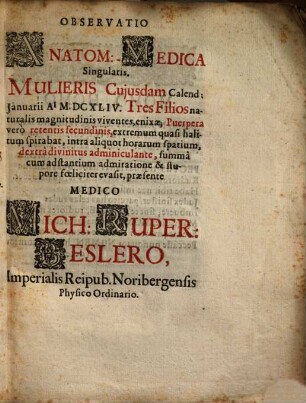 OBSERVATIO
ANATOM:-MEDICA
Singularis.
MULIERIS Cujusdam Calend:
Januarii A! M.DCXLIV. Tres Filios na-
turalis magnitudinis viventes, enixæ, Puerpera
verò retentis secundinis, extremum quasi hali-
tum spirabat, intra aliquot horarum spatium,
dextrâ divinitus adminiculante, summâ
cum adstantium admiratione & stu-
pore fœliciter evasit, præsente
MEDICO
MICH: RUPER:
BESLERO,
Imperialis Reipub. Noribergensis
Physico Ordinario.